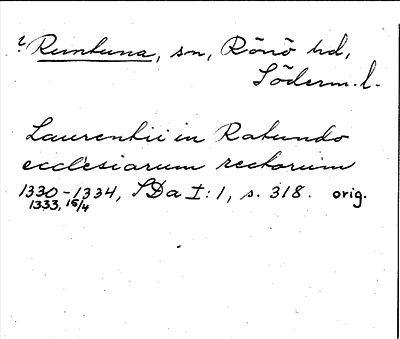 ? Runtuna, sn, Rönö hd,
Söderm. l.
Laurentii in Rotundo
ecclesiarum rectorum
1330-1334, SDa I:1, s. 318. orig.
1333, 15/4